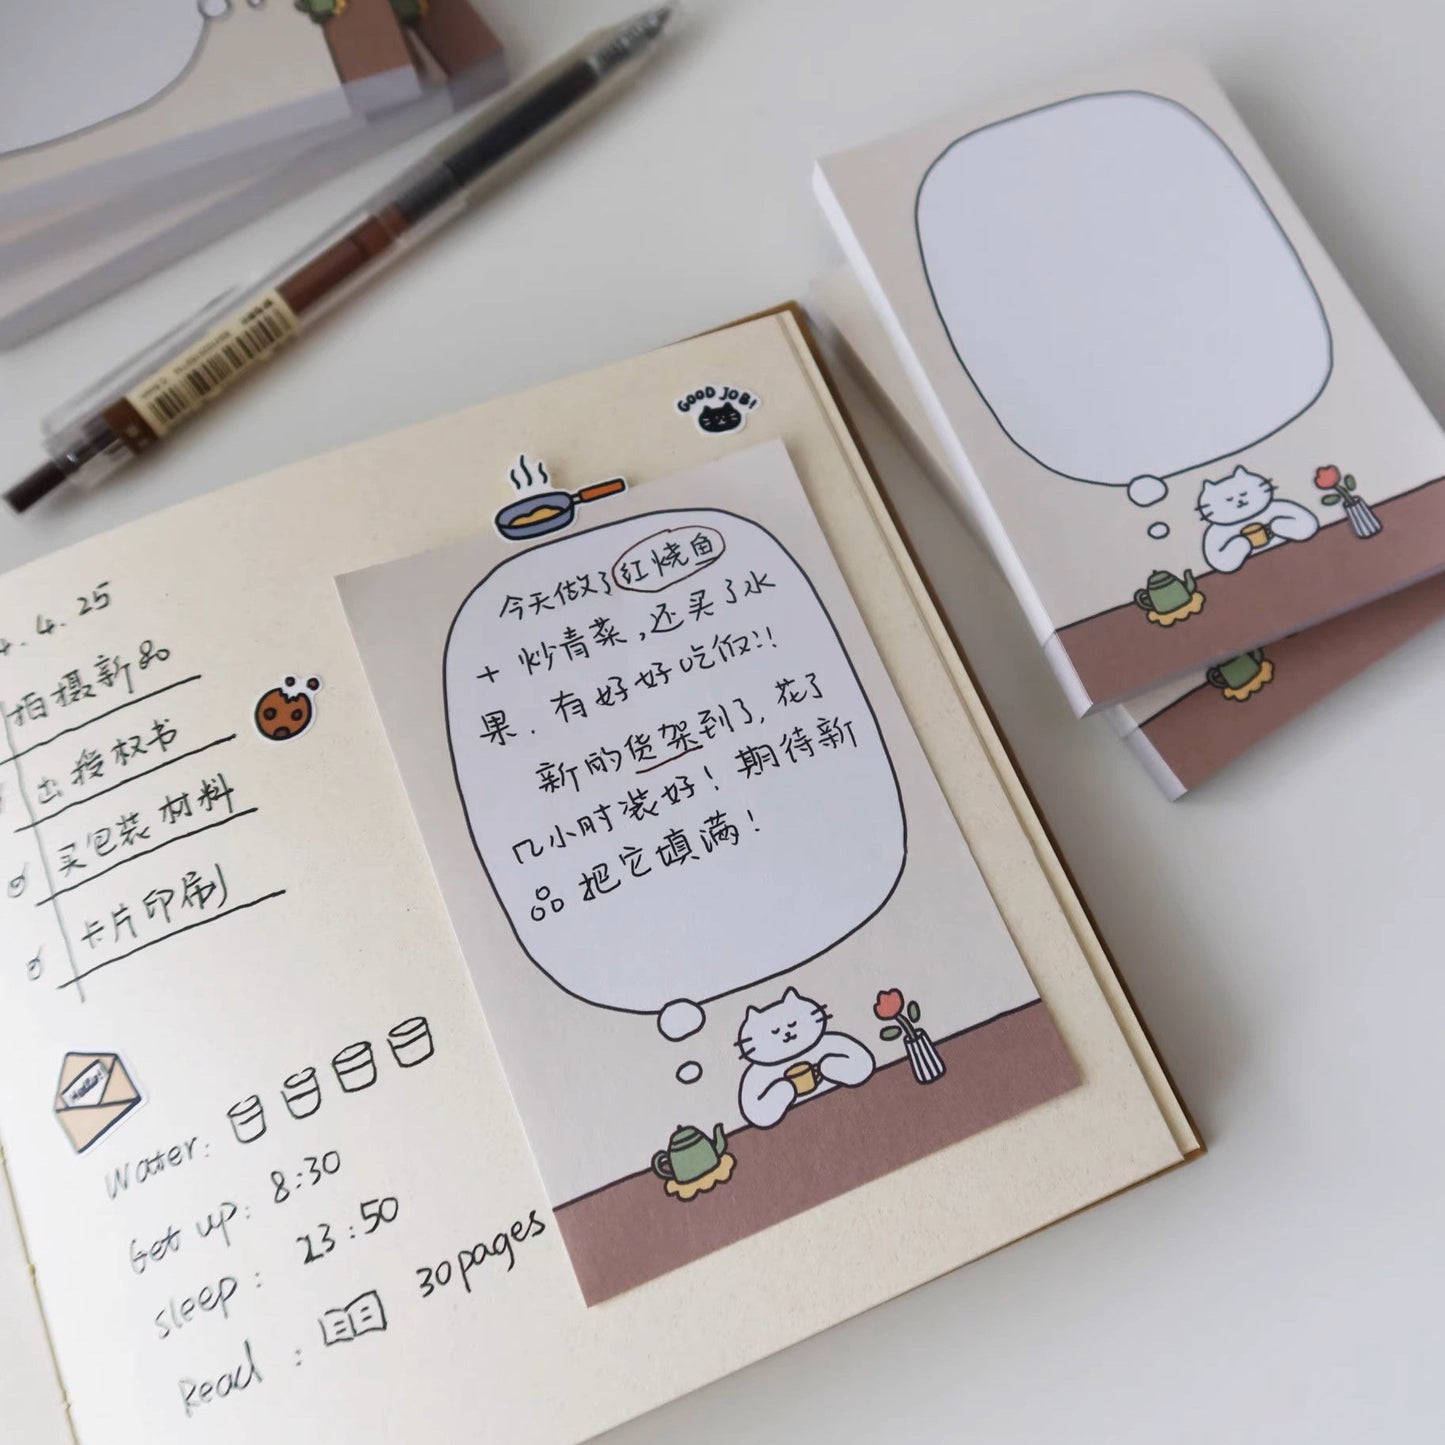 GOOD JOB!
4.4.25
拍摄新品
出授权书
买包装材料
卡片印刷
Hello!
Water:
Get up: 8:30
sleep: 23:50
Read: 30pages
今天做了红烧鱼
+ 炒青菜,还买了水
果.有好好吃饭!!
新的货架到了,花了
几小时装好!期待新
品把它填满!